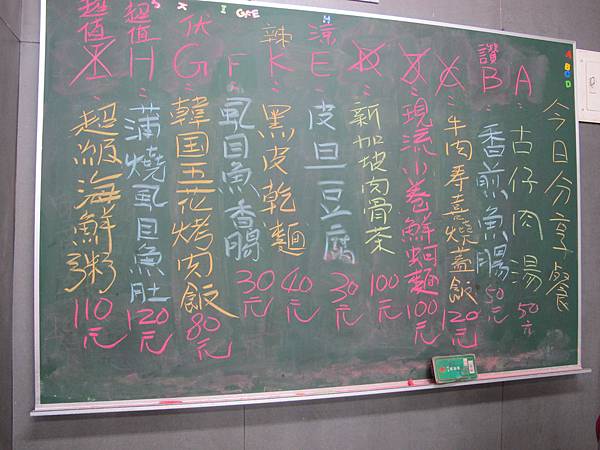 今日分享餐
A：古仔肉湯 50元
讚 B：香煎魚腸 50元
牛肉壽喜燒蓋飯 120元
現流小卷鮮蚵麵 100元
新加坡肉骨茶 100元
涼 E：皮旦豆腐 30元
辣 K：黑皮乾麵 40元
F：虱目魚香腸 30元
伏 G：韓国五花烤肉飯 80元
超值 H：蒲燒虱目魚肚 120元
超值 I：超級海鮮粥 110元
A
B
C
D
H
I GFE